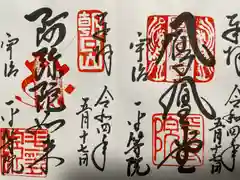 奉拝
鳳凰堂
宇治
平等院
令和四年
五月十七日
奉拝
朝日山
阿弥陀如来
宇治
平等院
令和四年
五月十七日